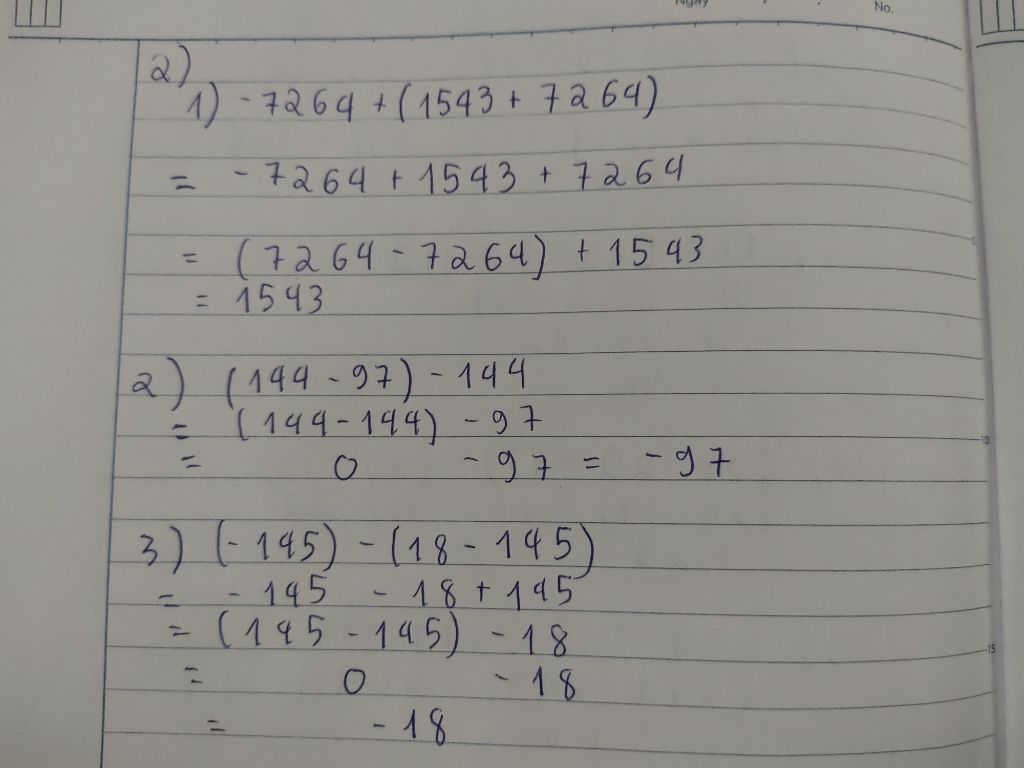 Ngày
No.
2)
1) -7264 + (1543 + 7264)
= -7264 + 1543 + 7264
= (7264 - 7264) + 1543
= 1543
2) (144 - 97) - 144
= (144 - 144) - 97
= 0 - 97 = -97
3) (-145) - (18 - 145)
= -145 - 18 + 145
= (145 - 145) - 18
= 0 - 18
= -18
5
10
15